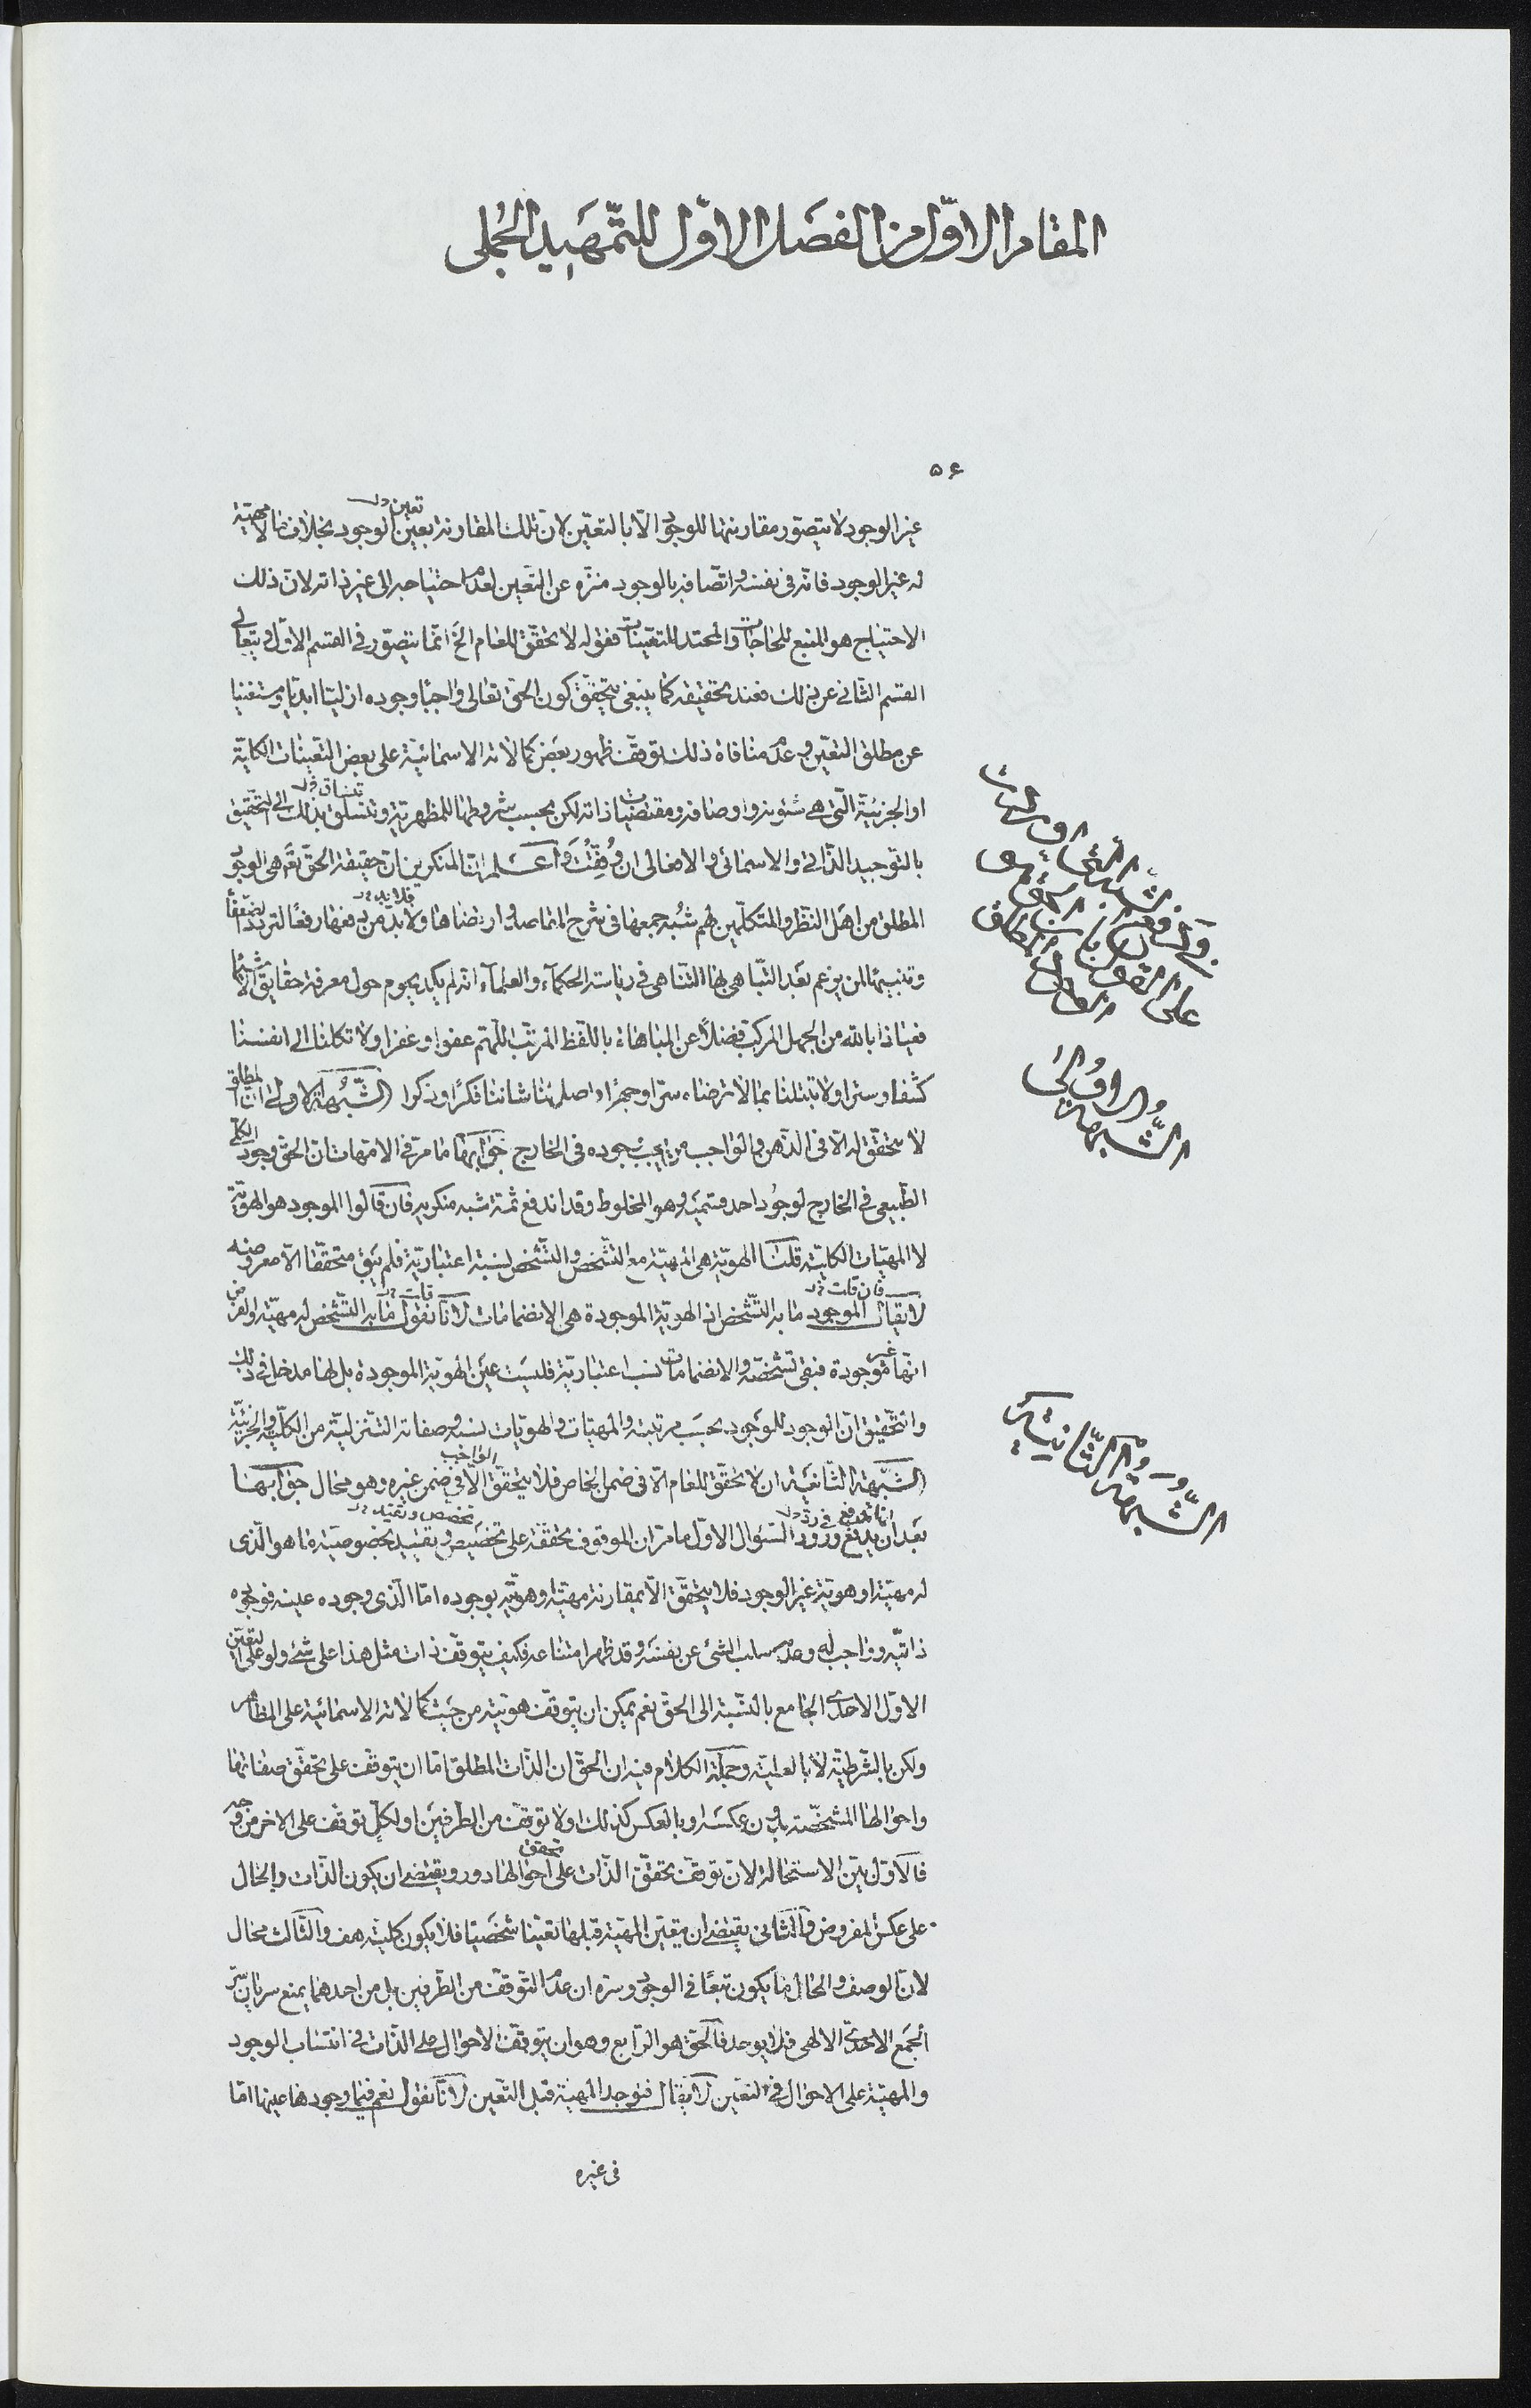 المقام الاوّل من الفصَل الاوّل للتّمهَيد الجُملى
۵۶
غير الوجود لا يتصوّر مقارنتها للوجود الّا بالتعيّن لانّ تلك المقارنة بعين الوجود بخلاف ما لا مهيّة
تعين
له غير الوجود فانّه فى نفسه واتّصافه بالوجود منزّه عن التعين لعدم احتياجه الى غير ذاته لانّ ذلك
الاحتياج هو المنبع للحاجات والمحتد للتعيّنات فقوله لا تحقّق للعام الخ انّما يتصوّر فى القسم الاوّل ويتعالى
القسم الثانى عن ذلك فعند تحقيقه كما ينبغى يتحقّق كون الحق تعالى واجبًا وجوده ازليّا ابديّا ومستغنيا
عن مطلق التعيّن وعدم منافاة ذلك توقّف ظهور بعض كمالاته الاسمائيّة على بعض التّعينات الكليّة
او الجزئيّة الّتى هى شئونه واوصافه ومقتضيات ذاته لكن بحسب شروطها للمظهريّة وتتسلق بذلك الى التحقيق
بالتّوحيد الذّاتى والاسمائى والافعالى ان وُفّقتَ واعَلم انّ المنكرين انّ حقيقة الحقّ تعَالى هى الوجود
المطلق من اهَل النّظر والمتكلّمين لهم شُبه جمعها فى شرح المقاصد وارتضاها ولا بدّ من دفعها رفعًا لتردد الضعفَاء
فلا بد
وتنبيها لمن يزعم بعَد التّباهى بها التّناهى فى رياسة الحكمآء والعلمآء انه لم يكد يحوم حول معرفة حقايق الاشيَاء
فعياذا بالله من الجهل المركب فضلًا عن المباهاة باللّفظ المرتّب اللّهم عفوا وغفرا ولا تكلنا الى انفسنا
كشفا وسترا ولا تبتلنا بما لا ترضاه سرّا وجهرًا واصلح لنا شاننا فكرًا وذكرا الشّبُهة الاولى انّ المطلق
لا تحقّق له الّا فى الذّهن والواجب من يجب وجوده فى الخارج جَوابها ما مرّ فى الامّهات انّ الحقّ وجود الكلّى
الطّبيعى فى الخارج لوجُود احد قسميَه وهو المخلوط وقد اندفع ثمّة شبه منكريه فان قالوا الموجود هو الهويّة
لا المهيّات الكليّة قلنَا الهويّة هى المهيّة مع التّشخّص والتّشخّص نسبة اعتباريّة فلم يَبق متحقّقا الّا معروضه
لا يقال الموجود ما به التّشخّص اذ الهويّة الموجودة هى الانضمامات لانّا نقول ما به التّشخّص له مهيّة والفرض
فان قلت
قلت
انّها غير موجودة فبقى تشخّصه والانضمامات نسب اعتباريّة فليسَت عيَن الهويّة الموجودة بل لها مدخل فى ذلك
والتّحقيق انّ الوجود للموجود بحسَب مرتبته والمهيّات والهويّات نسبه وصفاته التّنزليّة من الكلّية والجزئيّة
الشّبهة الثّانيَة ان لا تحقّق للعام الّا فى ضمن الخاص فلا يتحقّق الّا فى ضمن غيره وهو محال جوابهَا
الواجب
بعَد ان يدفع ورود السّؤال الاوّل ما مرّ ان الموقوف تحقّقه على تخصيَص وتقييد بخصوصيّة ما هو الّذى
تخصص وتقيد
له مهيّة او هويّة غير الوجود فلا يتحقّق الّا بمقارنة مهيّته وهويّته بوجوده امّا الّذى وجوده عينه فوجوده
ذاتيّه وواجب له وعدمه سلب الشئ عن نفسَه وقد ظهر امتناعه فكيف يتوقّف ذات مثل هذا على شئ ولو على التعيّن
الاوّل الاحدى الجامع بالنّسبة الى الحقّ نعم يمكن ان يتوقّف هويّته من حَيث كمالاته الاسمائيّة على المظاهر
ولكن بالشّرطيّة لا بالعليّة وجملة الكلام فيه ان الحقّ ان الذّات المطلق امّا ان يتوقّف على تحقّق صفاتها
واحوالها المشخّصة بدون عكسَه او بالعكس كذلك او لا توقّف من الطّرفيَن او لكلّ توقّف على الاخر من وجه
فالاوّل بيّن الاستحالة لانّ توقّف تحقّق الذّات على احوالها دور ويقتضى ان يكون الذّات والحال
تحقق
على عكس المفروض والثّانى يقتضى ان يتعيّن المهيّة قبلها تعيّنا شخصَيّا فلا يكون كليّة هف والثّالث محال
لانّ الوصف والحال انما يكون تبعًا فى الوجود وسرّه ان عدم التّوقّف من الطّرفين بل من احدهما يمنع سريان سرّ
الجَمع الاحدىّ الالهى فلا يوجد فالحقّ هو الرّابع وهو ان يتوقّف الاحوال على الذّات فى انتساب الوجود
والمهيّة على الاحوال فى التعيّن لا يقال فتوجد المهيّة قبل التّعين لانّا نقول نعم فيما وجودها عينها امّا
فى غيره
على القول بانّ الحق هو
الشّبهة الاوُلى
الشّبهة الثّانيَة